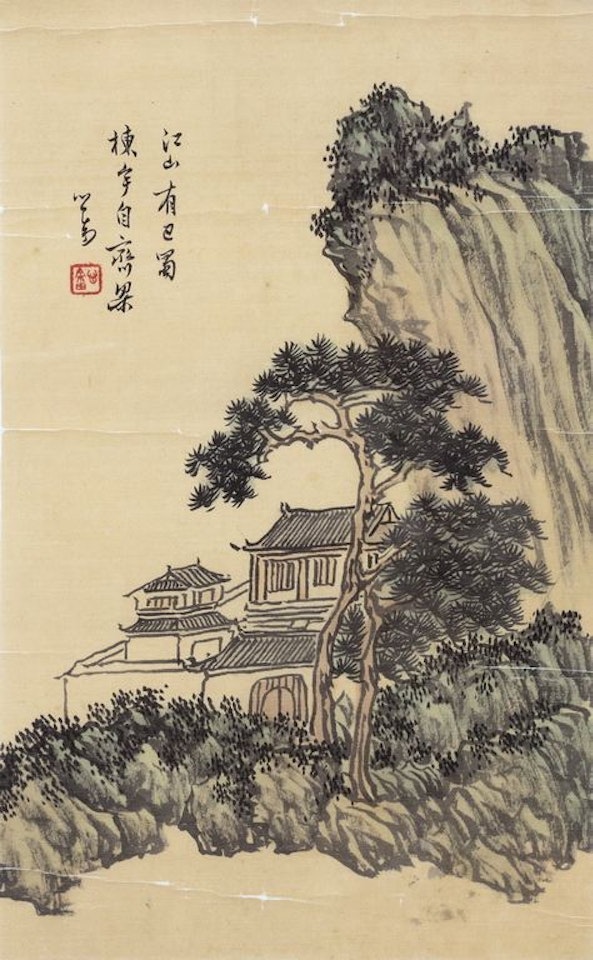 江山有巴蜀
棟宇自齊梁
心畬